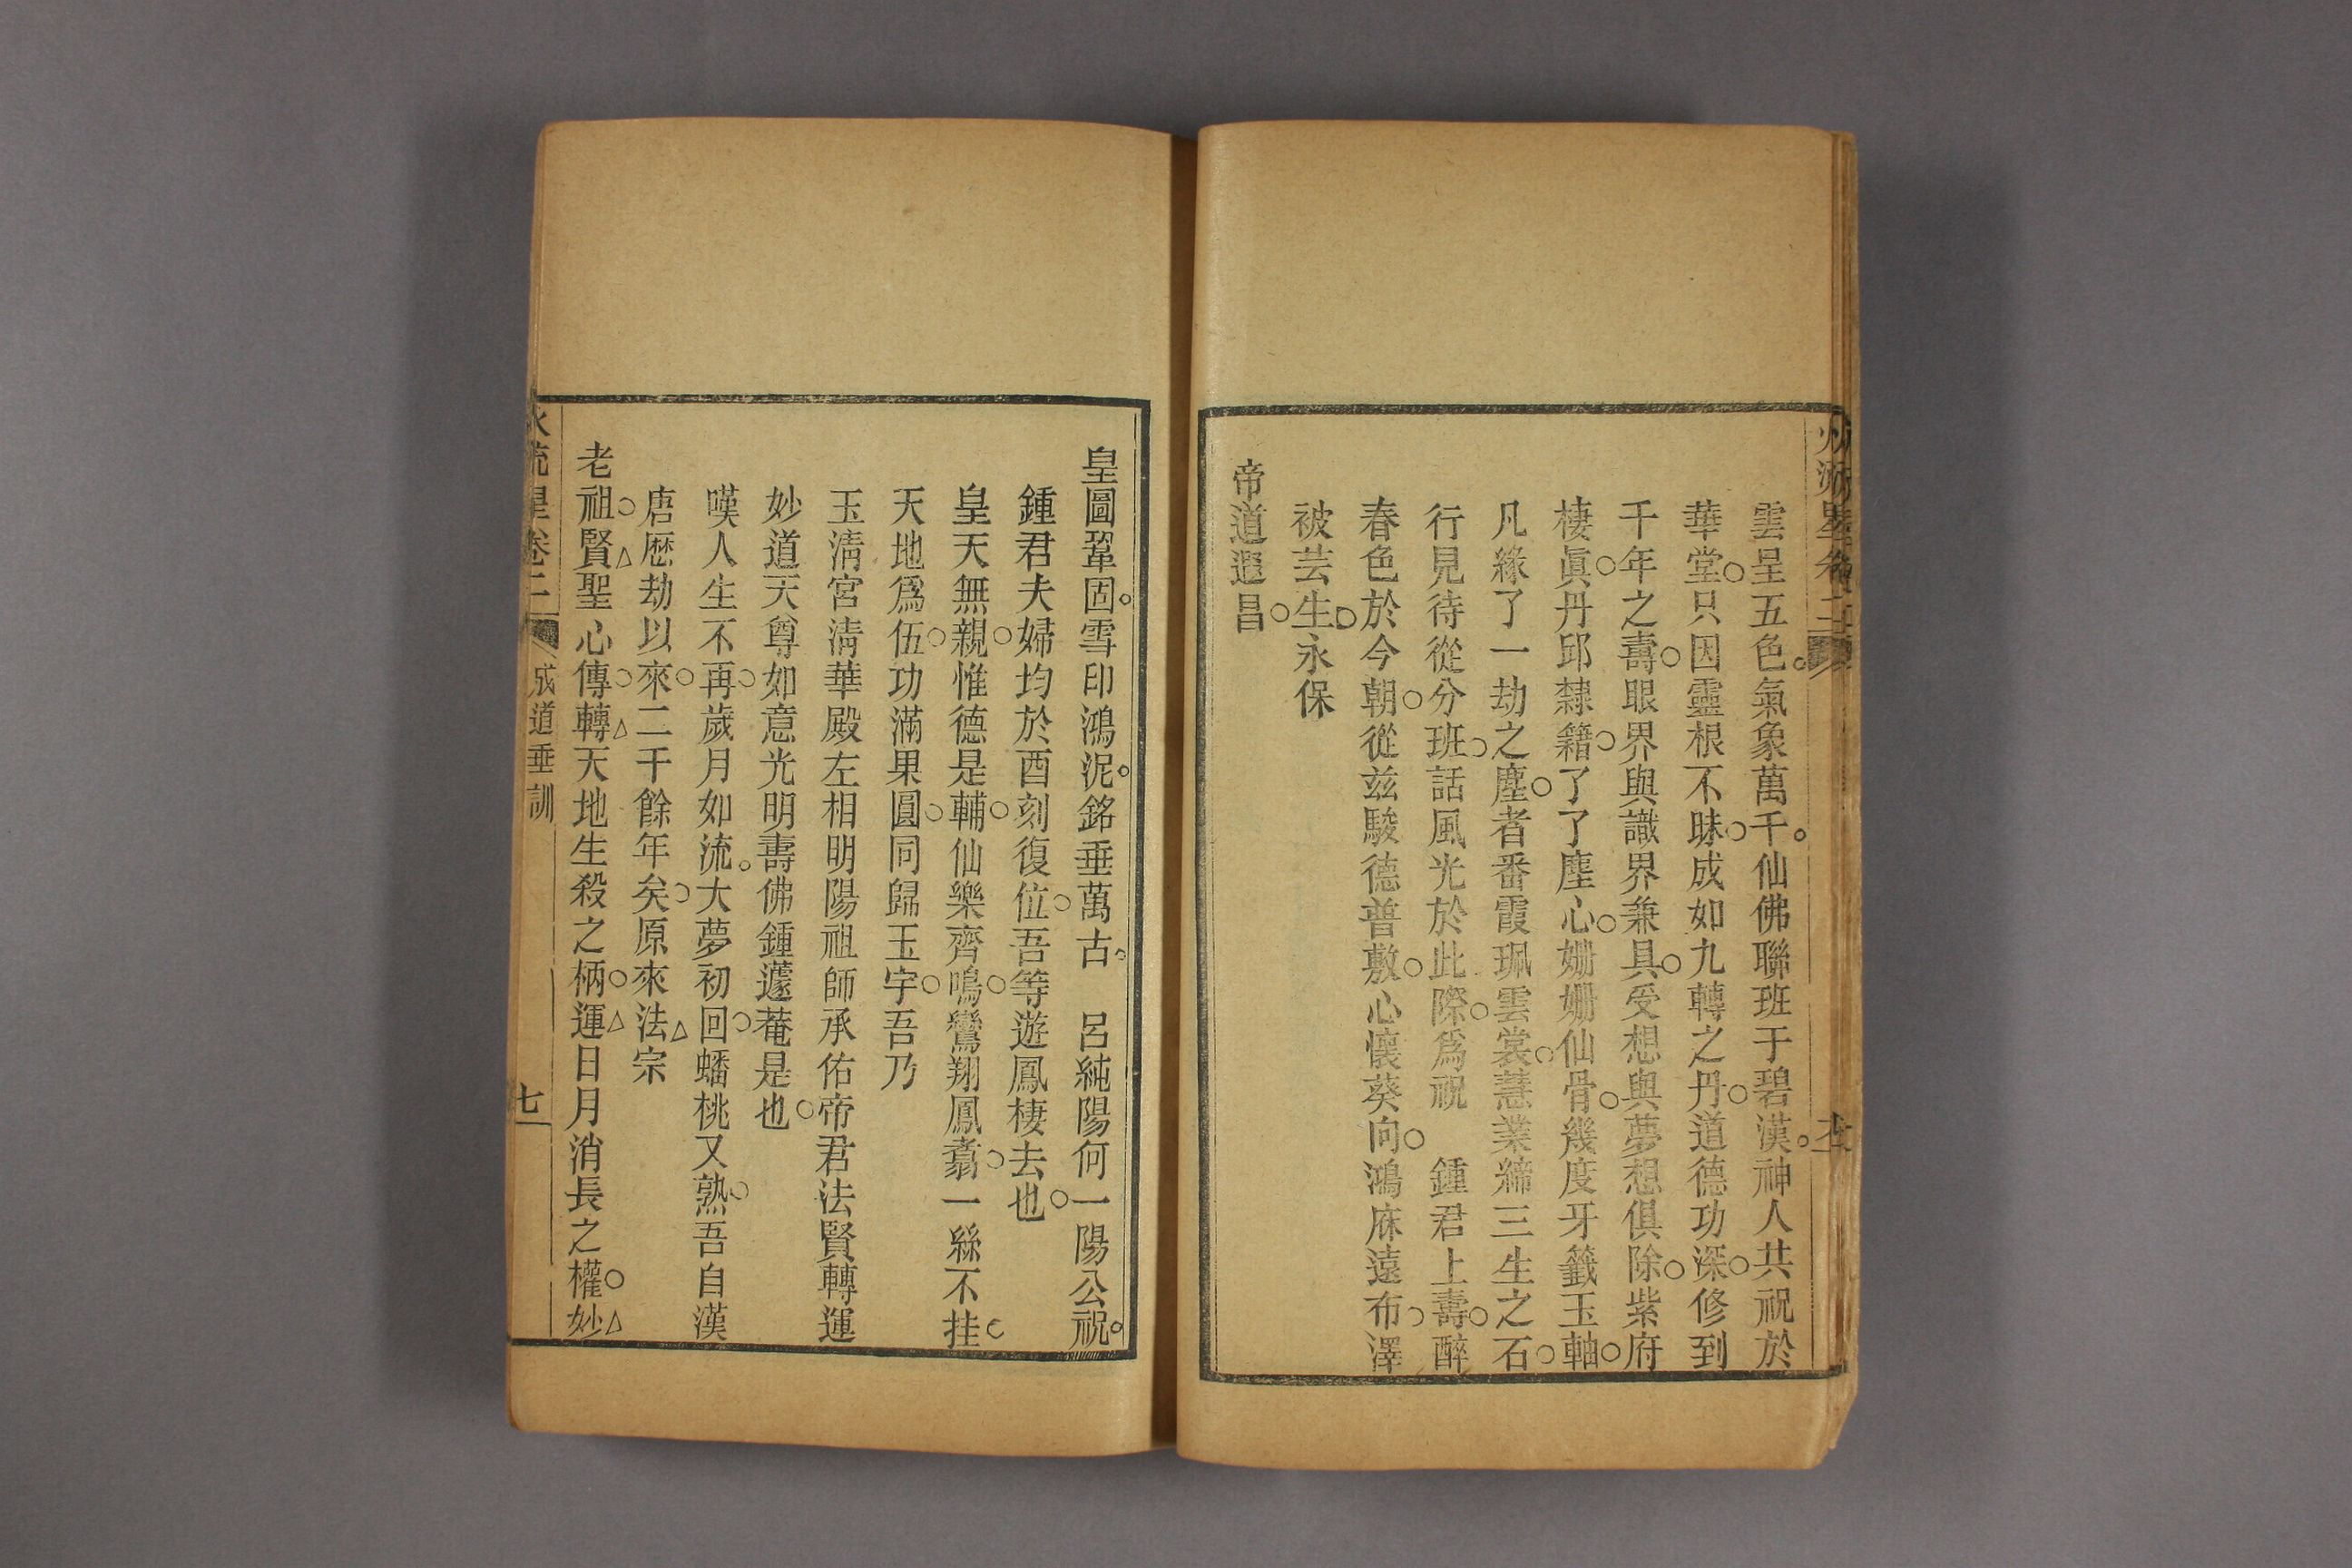 雲呈五色。氣象萬千。仙佛聯班于碧漢。神人共祝於
華堂○只因靈根不昧○成如九轉之丹○道德功深○修到
千年之壽○眼界與識界兼具○受想與夢想俱除○紫府
棲眞○丹邱隸籍○了了塵心○姍姍仙骨○幾度牙籤玉軸○
凡緣了一劫之塵○者番霞珮雲裳○慧業締三生之石○
行見待從分班○話風光於此際○爲祝　鍾君上壽○醉
春色於今朝○從兹駿德普敷○心懷葵向○鴻庥遠布○澤
被芸生○永保
帝道遐昌○
皇圖鞏固。雪印鴻泥。銘垂萬古。　呂純陽何一陽公祝。
鍾君夫婦均於酉刻復位○吾等遊鳳棲去也○
皇天無親○惟德是輔○仙樂齊鳴○鸞翔鳳翥○一絲不挂○
天地爲伍○功滿果圓○同歸玉宇○吾乃
玉淸宮淸華殿左相明陽祖師承佑帝君法賢轉運
妙道天尊如意光明壽佛鍾蘧菴是也○
嘆人生不再○歲月如流。大夢初回○蟠桃又熟○吾自漢
唐歷劫以來○二千餘年矣○原來法△宗
老祖○賢△聖心傳○轉△天地生殺之柄○運△日月消長之權○妙△
流星卷二
成道垂訓
七